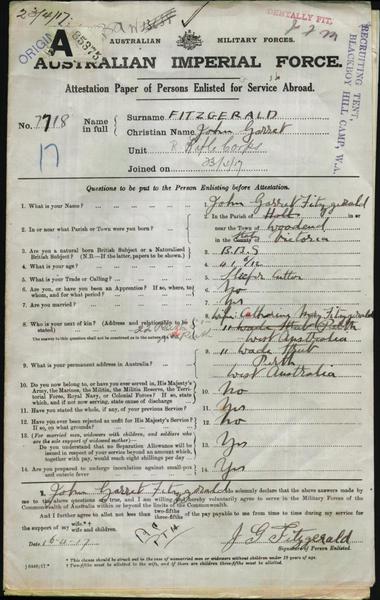 23/4/17
ORIGINAL
A
35373
DENTALLY FIT.
RECRUITING TENT,
BLACKBOY HILL CAMP, W.A.
AUSTRALIAN MILITARY FORCES.
AUSTRALIAN IMPERIAL FORCE.
Attestation Paper of Persons Enlisted for Service Abroad.
No. 7718 Name in full
Surname FITZGERALD
Christian Name John Garret
Unit
Joined on 23/4/17
17
Questions to be put to the Person Enlisting before Attestation.
1. What is your Name? 1. John Garret Fitzgerald
2. In or near what Parish or Town were you born? 2. In the Parish of in or
near the Town of Woodend
in the Victoria
3. Are you a natural born British Subject or a Naturalised British Subject? (N.B.—If the latter, papers to be shown.) 3. B.B.S
4. What is your age? 4. 41
5. What is your Trade or Calling? 5. Sleeper Cutter
6. Are you, or have you been an Apprentice? If so, where, to whom, and for what period? 6. No
7. Are you married? 7. Yes
8. Who is your next of kin? (Address and relationship to be stated) 8. Wife Catherine Mary Fitzgerald
11 Wade Street Perth
West Australia
9. What is your permanent address in Australia? 9. 11 Wade Street
Perth
West Australia
10. Do you now belong to, or have you ever served in, His Majesty's Army, the Marines, the Militia, the Militia Reserve, the Territorial Force, Royal Navy, or Colonial Forces? If so, state which, and if not now serving, state cause of discharge 10. No
11. Have you stated the whole, if any, of your previous Service? 11. Yes
12. Have you ever been rejected as unfit for His Majesty's Service? If so, on what grounds? 12. No
13. (For married men, widowers with children, and soldiers who are the sole support of widowed mother)—
Do you understand that no Separation Allowance will be issued in respect of your service beyond an amount which, together with pay, would reach eight shillings per day 13. Yes
14. Are you prepared to undergo inoculation against small-pox and enteric fever 14. Yes
I, John Garret Fitzgerald solemnly declare that the above answers made by
me to the above questions are true, and I am willing and hereby voluntarily agree to serve in the Military Forces of the
Commonwealth of Australia within or beyond the limits of the Commonwealth.
And I further agree to allot not less than two-fifths three-fifths of the pay payable to me from time to time during my service for the
support of my wife.*† wife and children.
Date 16-4-17
J G Fitzgerald
Signature of Person Enlisted.
* This clause should be struck out in the case of unmarried men or widowers without children under 18 years of age.
† Two-fifths must be allotted to the wife, and if there are children three-fifths must be allotted.